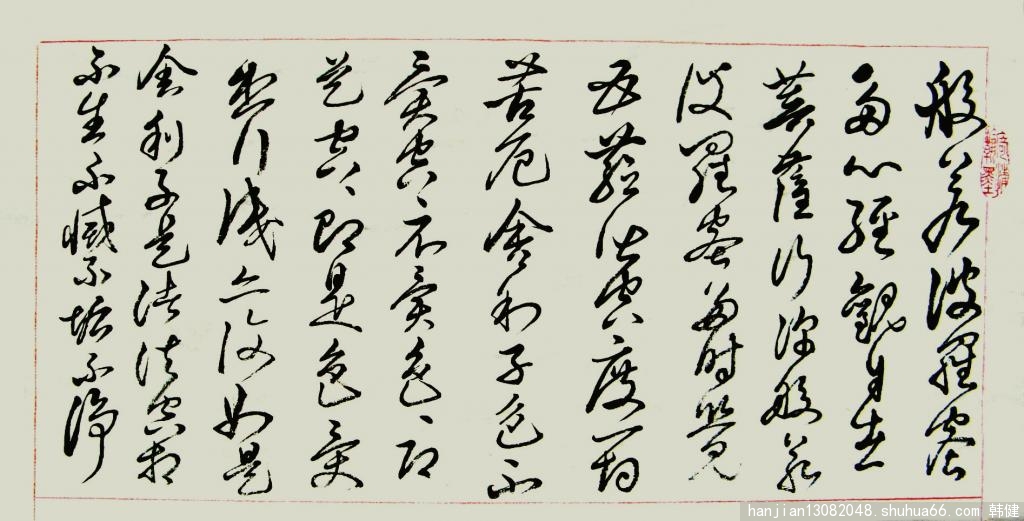 般若波羅蜜
多心經觀自在
菩薩行深般若
波羅蜜多时照見
五蘊皆空度一切
苦厄舍利子色不
異空〻不異色〻即
是空〻即是色受
想行識亦復如是
舍利子是諸法空相
不生不滅不垢不淨
hanjian13082048.shuhua66.com 韩健